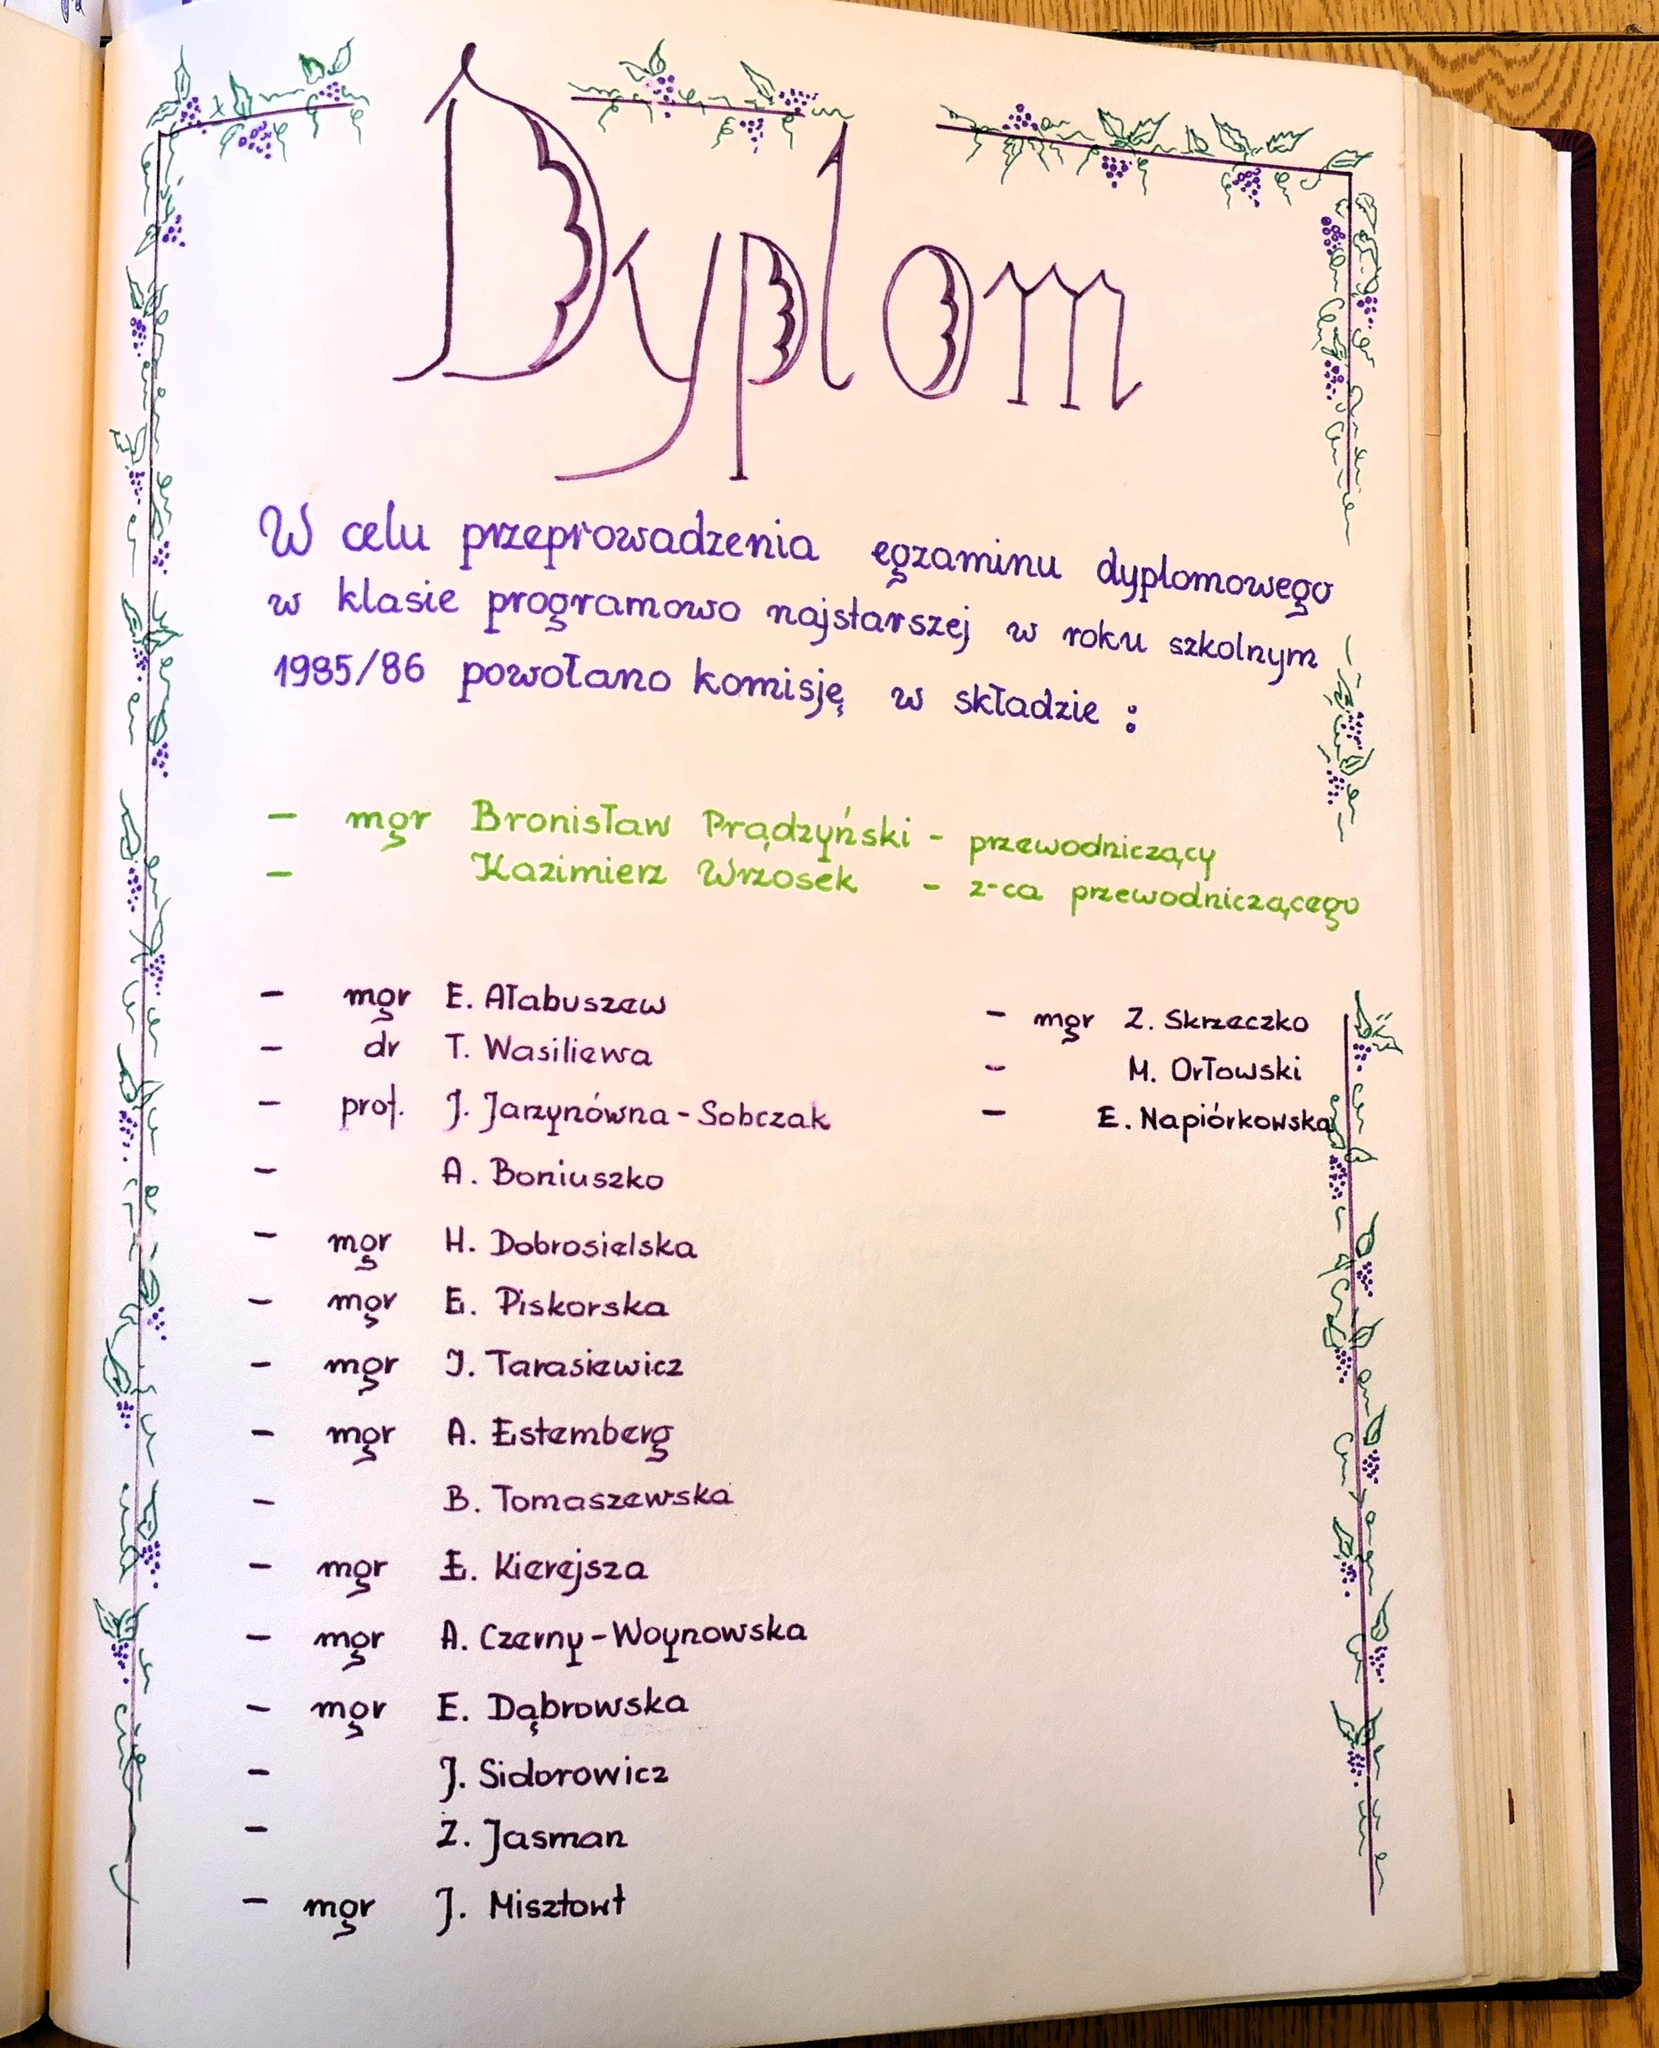 Dyplom
W celu przeprowadzenia egzaminu dyplomowego
w klasie programowo najstarszej w roku szkolnym
1985/86 powołano komisję w składzie :
- mgr Bronisław Prądzyński - przewodniczący
- Kazimierz Wrzosek - z-ca przewodniczącego
- mgr E. Ałabuszew
- dr T. Wasiliewa
- prof. J. Jarzynówna-Sobczak
- A. Boniuszko
- mgr H. Dobrosielska
- mgr E. Piskorska
- mgr J. Tarasiewicz
- mgr A. Estemberg
- B. Tomaszewska
- mgr E. Kierejsza
- mgr A. Czerny-Woynowska
- mgr E. Dąbrowska
- J. Sidorowicz
- Z. Jasman
- mgr J. Misztowt
- mgr Z. Skrzeczko
- M. Orłowski
- E. Napiórkowska